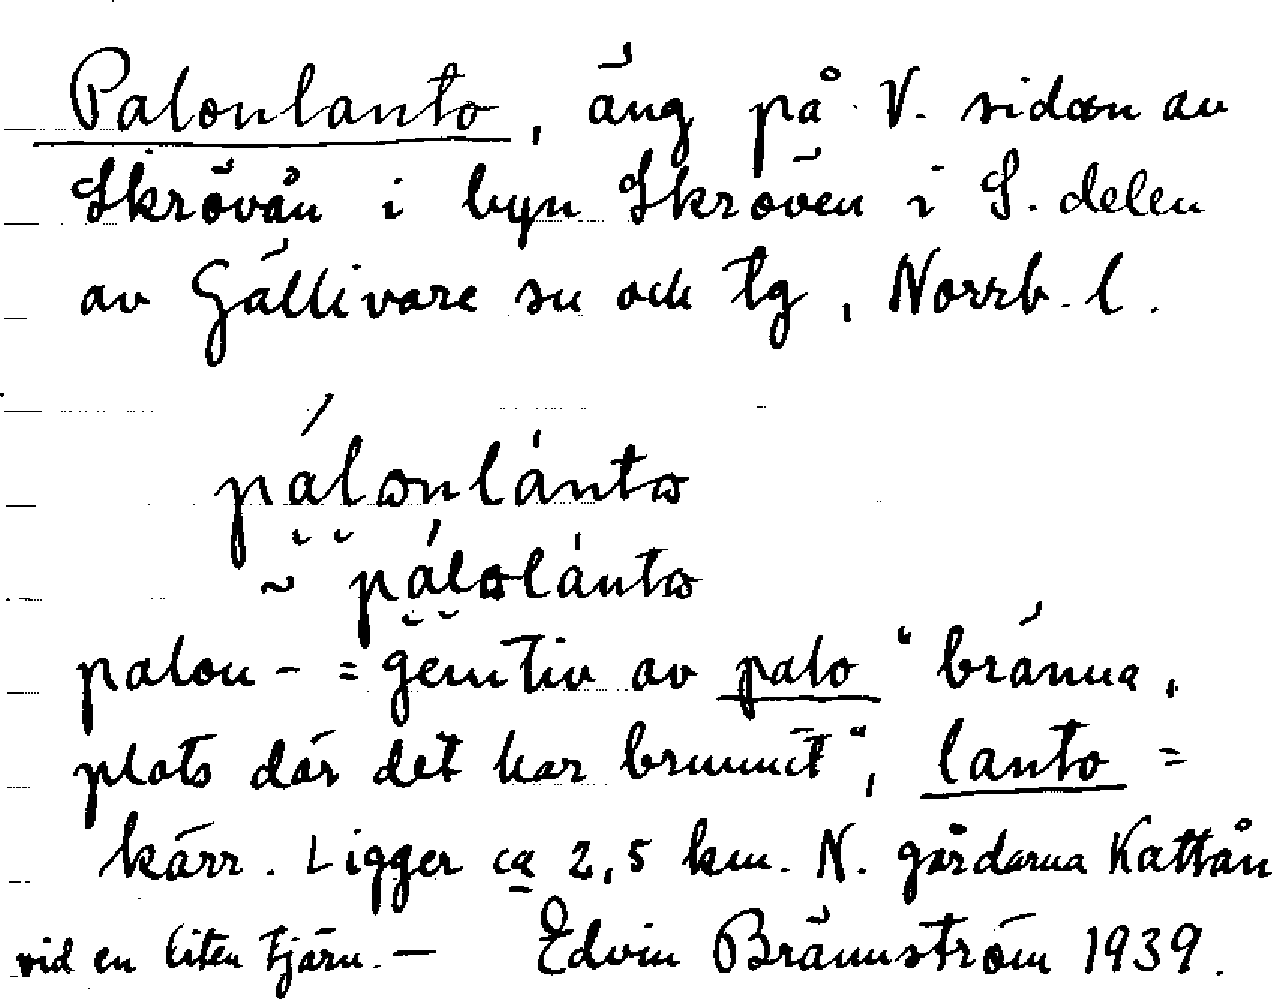 Palonlanto, äng på V. sidan av
Skröván i byn Skröven i S. delen
av Gällivare sn och tg, Norrb. l.
pálonlànto
~ pálolànto
palon- = genitiv av palo "bränna,
plats där det har brunnit", lanto =
kärr. Ligger ca 2,5 km. N. gårdarna Kattån
vid en liten tjärn. — Edvin Brännström 1939.